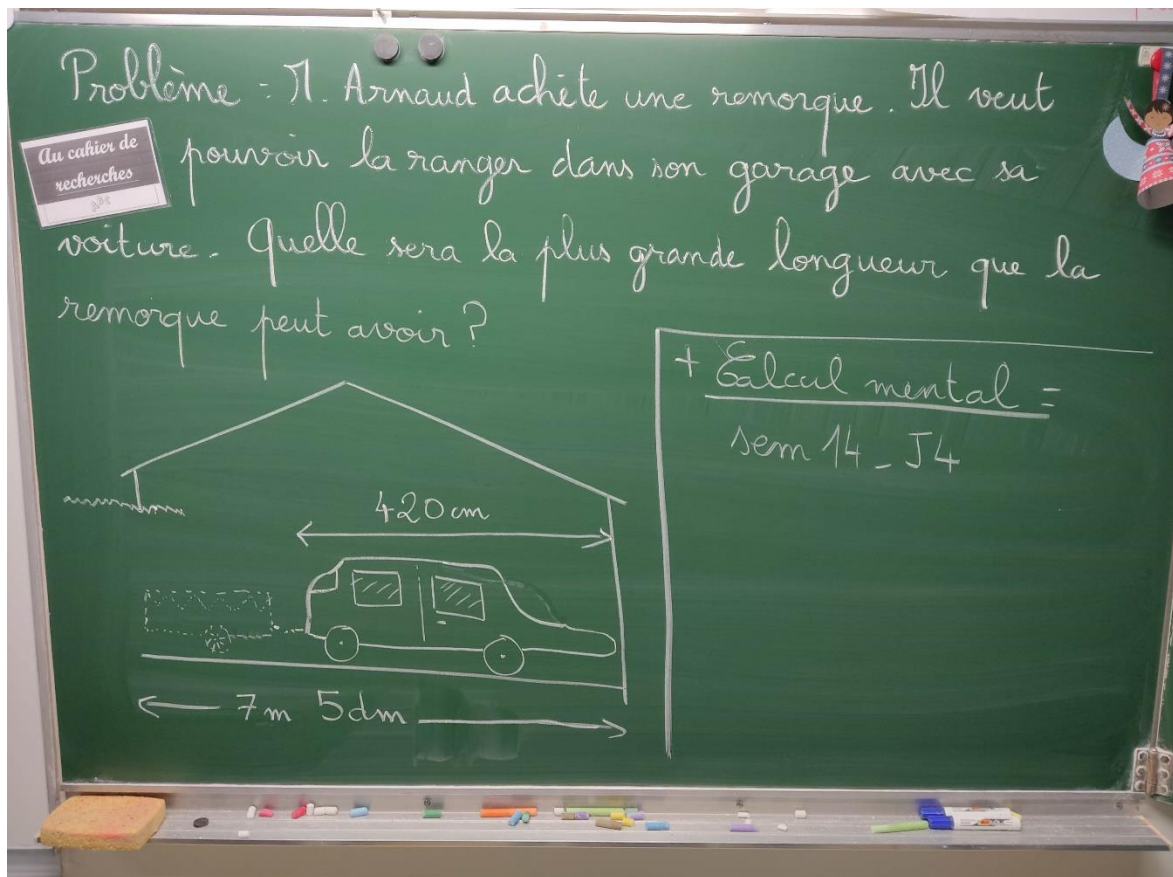 Problème : M. Arnaud achète une remorque. Il veut
pouvoir la ranger dans son garage avec sa
voiture. Quelle sera la plus grande longueur que la
remorque peut avoir ?
Au cahier de
recherches
+ Calcul mental :
sem 14 - J4
420 cm
7 m 5 dm